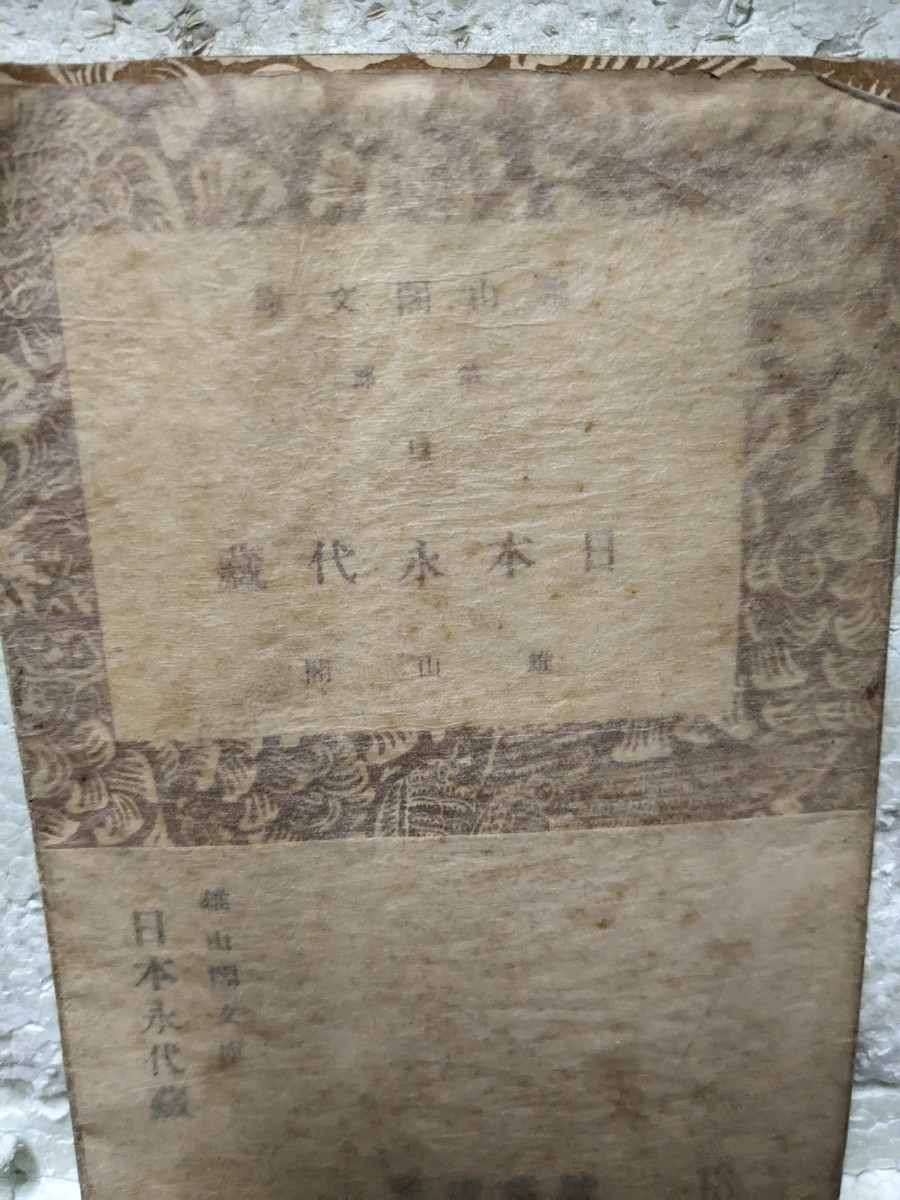 雄山閣文庫
日本永代蔵
雄山閣
雄山閣文庫
日本永代蔵
13